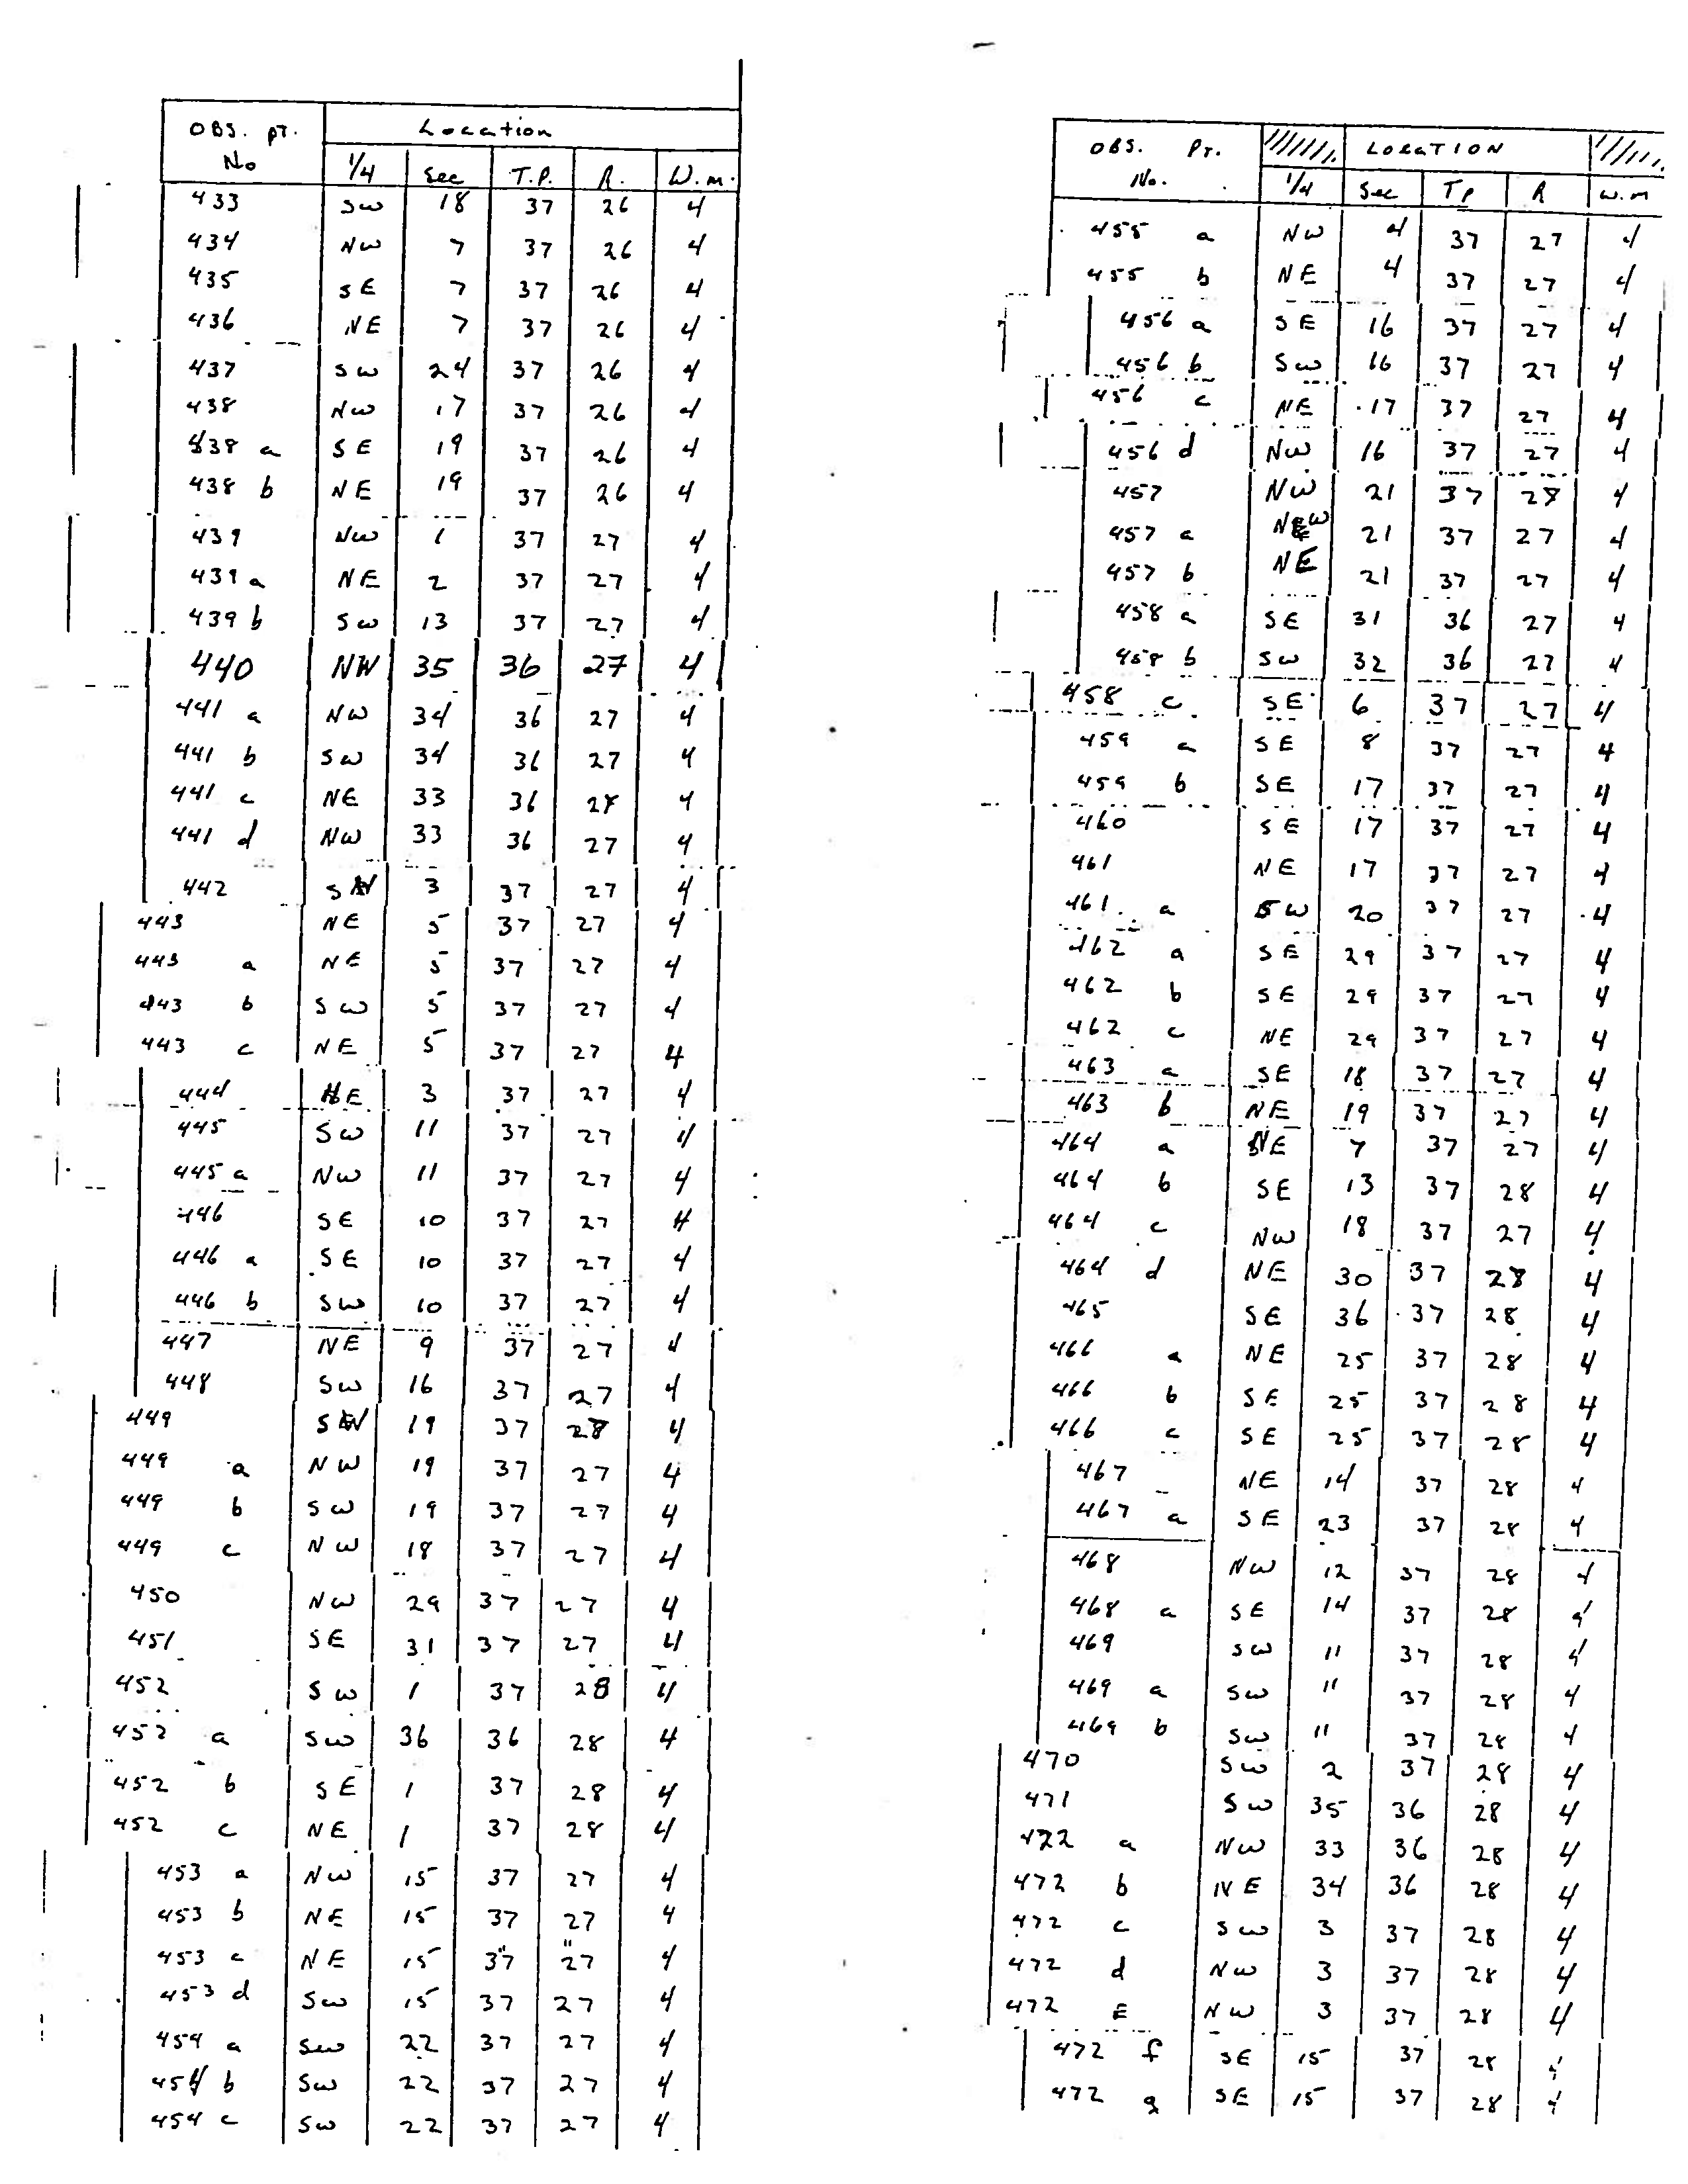 OBS. PT. Location
No 1/4 Sec T.P. R. W.m.
433 SW 18 37 26 4
434 NW 7 37 26 4
435 SE 7 37 26 4
436 NE 7 37 26 4
437 SW 24 37 26 4
438 NW 17 37 26 4
438 a SE 19 37 26 4
438 b NE 19 37 26 4
439 NW 1 37 27 4
439 a NE 2 37 27 4
439 b SW 13 37 27 4
440 NW 35 36 27 4
441 a NW 34 36 27 4
441 b SW 34 36 27 4
441 c NE 33 36 27 4
441 d NW 33 36 27 4
442 SW 3 37 27 4
443 NE 5 37 27 4
443 a NE 5 37 27 4
443 b SW 5 37 27 4
443 c NE 5 37 27 4
444 NE 3 37 27 4
445 SW 11 37 27 4
445 a NW 11 37 27 4
446 SE 10 37 27 4
446 a SE 10 37 27 4
446 b SW 10 37 27 4
447 NE 9 37 27 4
448 SW 16 37 27 4
449 SW 19 37 28 4
449 a NW 19 37 27 4
449 b SW 19 37 27 4
449 c NW 18 37 27 4
450 NW 29 37 27 4
451 SE 31 37 27 4
452 SW 1 37 28 4
452 a SW 36 36 28 4
452 b SE 1 37 28 4
452 c NE 1 37 28 4
453 a NW 15 37 27 4
453 b NE 15 37 27 4
453 c NE 15 37 27 4
453 d SW 15 37 27 4
454 a SW 22 37 27 4
454 b SW 22 37 27 4
454 c SW 22 37 27 4
OBS. PT. LOCATION
No. 1/4 Sec TP R W.M
455 a NW 4 37 27 4
455 b NE 4 37 27 4
456 a SE 16 37 27 4
456 b SW 16 37 27 4
456 c NE 17 37 27 4
456 d NW 16 37 27 4
457 NW 21 37 28 4
457 a NW 21 37 27 4
457 b NE 21 37 27 4
458 a SE 31 36 27 4
458 b SW 32 36 27 4
458 c SE 6 37 27 4
459 a SE 8 37 27 4
459 b SE 17 37 27 4
460 SE 17 37 27 4
461 NE 17 37 27 4
461 a SW 20 37 27 4
462 a SE 29 37 27 4
462 b SE 29 37 27 4
462 c NE 29 37 27 4
463 a SE 18 37 27 4
463 b NE 19 37 27 4
464 a NE 7 37 27 4
464 b SE 13 37 28 4
464 c NW 18 37 27 4
464 d NE 30 37 28 4
465 SE 36 37 28 4
466 a NE 25 37 28 4
466 b SE 25 37 28 4
466 c SE 25 37 28 4
467 NE 14 37 28 4
467 a SE 23 37 28 4
468 NW 12 37 28 4
468 a SE 14 37 28 4
469 SW 11 37 28 4
469 a SW 11 37 28 4
469 b SW 11 37 28 4
470 SW 2 37 28 4
471 SW 35 36 28 4
472 a NW 33 36 28 4
472 b NE 34 36 28 4
472 c SW 3 37 28 4
472 d NW 3 37 28 4
472 E NW 3 37 28 4
472 f SE 15 37 28 4
472 g SE 15 37 28 4